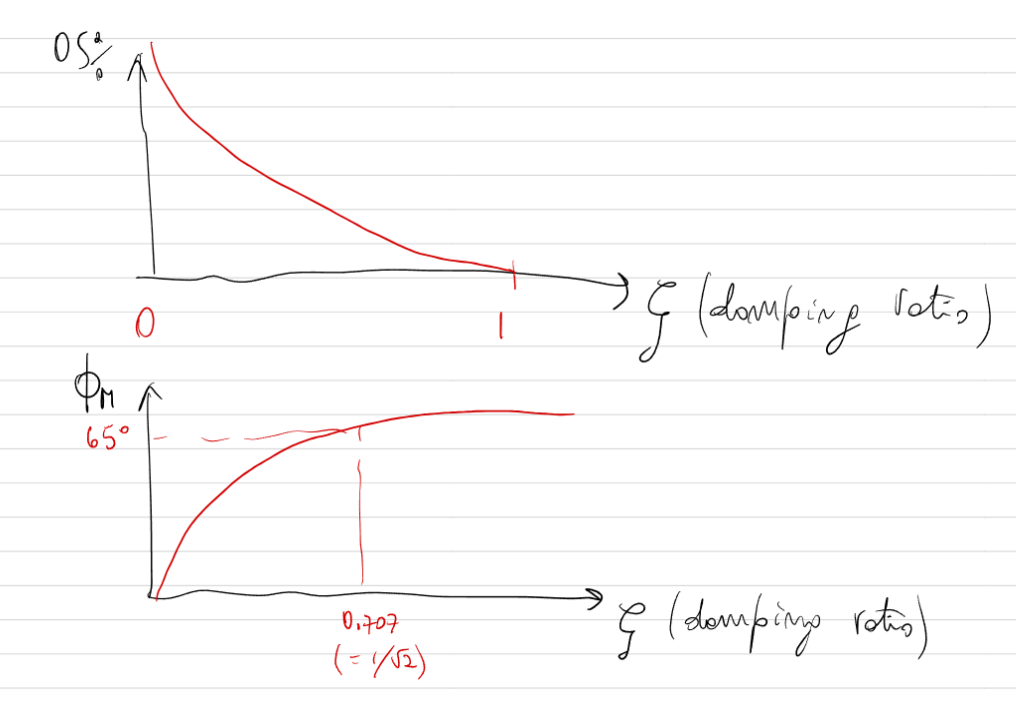 OS%
0
1
ζ (damping ratio)
ϕM
65°
0.707
(= 1/√2)
ζ (damping ratio)